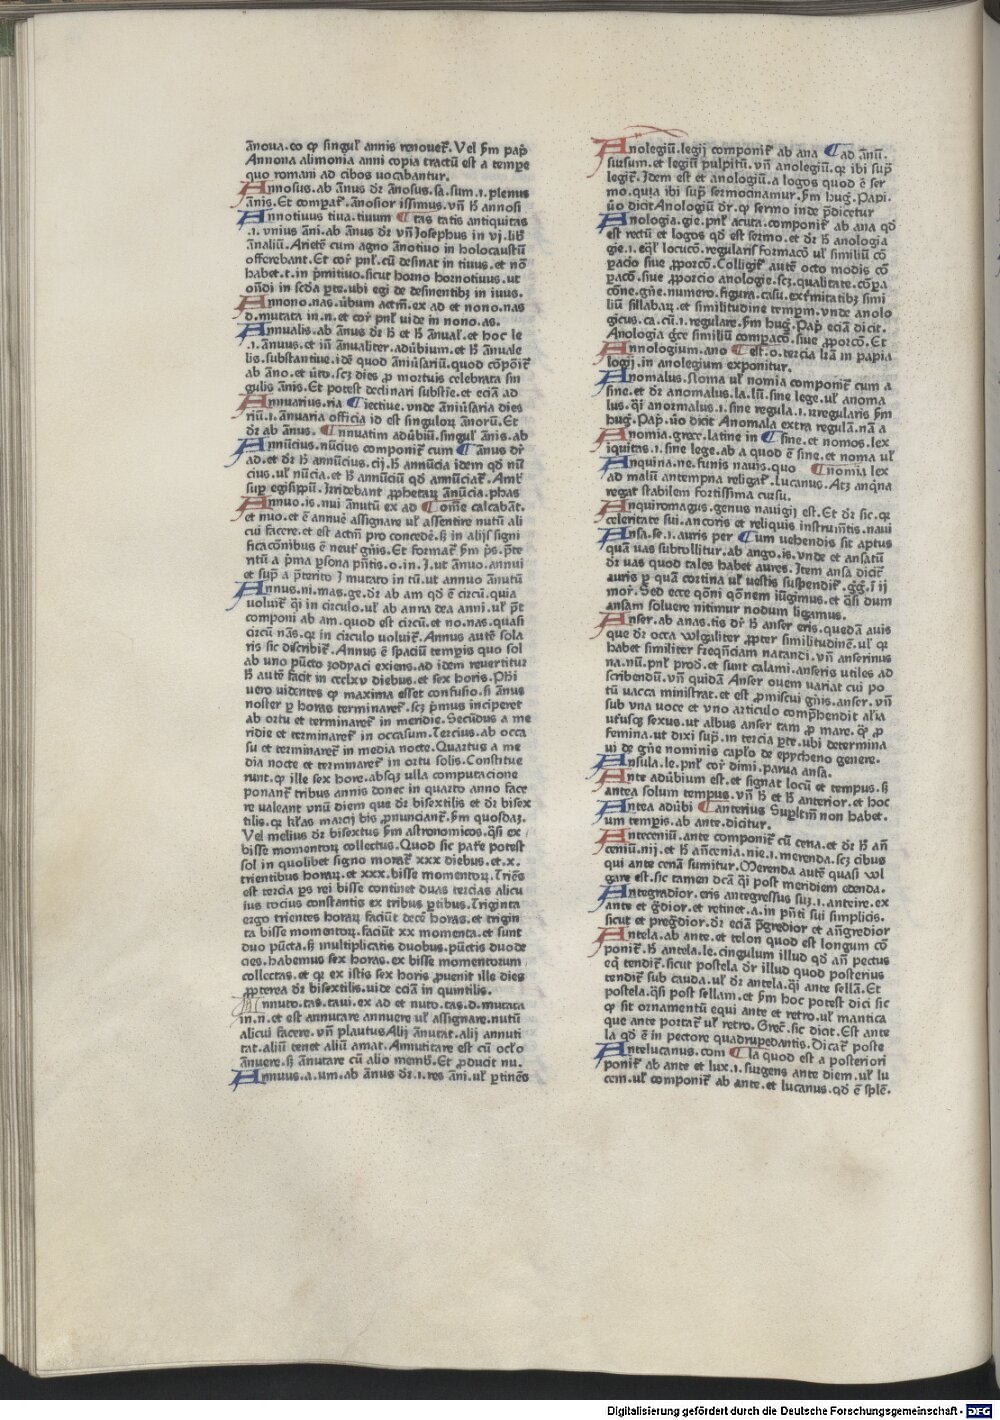 ãnoua.eo ꝙ singul̃ annis renouet̃.Vel ẜm pap̃
Annona alimonia anni copia tractũ est a tempe
quo romani ad cibos uocabantur.
Annosus.ab ãnus dr̃ ãnosus.sa.sum.i.plenus
ãnis.Et compat̃.ãnosior issimus.vñ h̃ annosi
Annotiuus tiua.tiuum ¶tas tatis antiquitas
.i.vnius ãni.ab ãnus dr̃ vñ Josephus in vj.lib̃
ãnaliũ.Arietẽ cum agno ãnotiuo in holocaustũ
offerebant.Et cor̃ pnl̃.cũ desinat in tiuus.et nõ
habet.t.in p̃mitiuo.sicut homo hornotiuus.ut
oñdi in sc̃da ꝑte.ubi egi de desinentibꝫ in iuus.
Annono.nas.ũbum actiũ.ex ad et nono.nas
d.mutata in.n.et cor̃ pnl̃ uide in nono.as.
Annualis.ab ãnus dr̃ h̃ et h̃ ãnual̃.et hoc le
.i.ãnuus.et iñ ãnualiter.adũbium.et h̃ ãnuale
lis.substantiue.idẽ quod ãniũsariũ.quod cõpõit̃
ab ãno.et ũto.scꝫ dies ꝓ mortuis celebrata sin
gulis ãnis.Et potest declinari substie.et eciã ad
Annuarius.ria ¶iectiue.vnde ãniũsaria dies
riũ.i.ãnuaria officia id est singuloꝝ ãnorũ.Et
dr̃ ab ãnus. ¶nnuatim adũbiũ.singul̃ ãnis.ab
Annũcius.nũcius componit̃ cum ¶ãnus dr̃
ad.et dr̃ h̃ annũcius.cij.h̃ annũcia idem qd̃ nũ
cius.ul̃ nũcia.et h̃ annũciũ qd̃ annũciat̃.Amr̃
suꝑ egisippũ.Irridebant ꝓphetaꝝ ãnũcia.phas
Annuo.is.nui ãnutũ ex ad ¶Oiñe calcabãt.
et nuo.et ẽ annuẽ assignare ul̃ assentire nutũ ali
cui facere.et est actiũ pro concedẽ.ẜ in alijs signi
ficacõnibus ẽ neut̃ gñis.Et format̃ ẜm p̃s.p̃te
ritũ a p̃ma ꝑsona p̃ñtis.o.in.i.ut ãnuo.annui
et sup̃ a p̃terito i mutato in tũ.ut annuo ãnutũ
Annus.ni.mas.ge.dr̃ ab am qd̃ ẽ circũ.quia
voluit̃ q̃i in circulo.ul̃ ab anna dea anni.ul̃ p̃t
componi ab am.quod est circũ.et no.nas.quasi
circũ nãs.qꝛ in circulo voluit̃.Annus autẽ sola
ris sic discribit̃.Annus ẽ spaciũ tempis quo sol
ab uno pũcto zodyaci exiens.ad idem reuertitur
h̃ autẽ facit in ccclxv diebus.et sex horis.Phi
uero videntes ꝙ maxima esset confusio.si ãnus
noster ꝑ horas terminaret̃.scꝫ p̃mus inciperet
ab ortu et terminaret̃ in meridie.Secũdus a me
ridie et terminaret̃ in occasum.Tercius.ab occa
su et terminaret̃ in media nocte.Quartus a me
dia nocte et terminaret̃ in ortu solis.Constitue
runt.ꝙ ille sex hore.absqꝫ ulla computacione
ponant̃ tribus annis donec in quarto anno face
re valeant vnũ diem que dr̃ bisextilis et dr̃ bisex
tilis.qꝛ kl̃as marcij bis ꝓnunciant̃.ẜm quosdaꝫ.
Vel melius dr̃ bisextus ẜm astronomicos.q̃si ex
bisse momentoꝝ collectus.Quod sic patr̃e potest
sol in quolibet signo morat̃ xxx diebus.et.x.
trientibus horaꝝ.et xxx.bisse momentoꝝ.Triẽs
est tercia ꝑs rei bisse continet duas tercias alicu
ius tocius constantis ex tribus ꝑtibus.Triginta
ergo trientes horaꝝ faciũt decẽ horas.et trigin
ta bisse momentoꝝ.faciũt xx momenta.et sunt
duo pũcta.ẜ multiplicatis duobus.pũctis duode
cies.habemus sex horas.ex bisse momentorum
collectas.et qꝛ ex istis sex horis ꝓuenit ille dies
ꝓpterea dr̃ bisextilis.uide eciã in quintilis.
Annuto.tas.taui.ex ad et nuto.tas.d.mutata
in.n.et est annutare annuere ul̃ assignare.nutũ
alicui facere.vñ plautus Alij ãnutat.alij annuti
tat.aliũ tenet aliũ amat.Annutitare est cũ oclo
ãnuere.ẜ ãnutare cũ alio memb̃.Et ꝓducit nu.
Annuus.a.um.ab ãnus dr̃.i.res ãni.ul̃ ꝑtinẽs
Anolegiũ.legij componit̃ ab ana ¶ad ãnũ.
sursum.et legiũ pulpitũ.vñ anolegiũ.qꝛ ibi sup̃
legit̃.Idem est et anologiũ.a logos quod ẽ ser
mo.quia ibi sup̃ sermocinamur.ẜm hug̃.Papi.
ũo dicit Anologiũ dr̃.ꝙ sermo inde p̃dicetur
Anologia.gie.pnl̃ acuta.componit̃ ab ana qd̃
est rectũ et logos qd̃ est sermo.et dr̃ h̃ anologia
gie.i.eq̃l̃ locucõ.regularis formacõ ul̃ similiũ cõ
ꝑacio siue ꝓporcõ.Colligit̃ autẽ octo modis cõ
ꝑacõ.siue ꝓporcio anologie.scꝫ.qualitate.cõꝑa
cõne.gñe.numero.figura.casu.ext̃mitatibꝫ simi
liũ sillabaꝝ.et similitudine tempm.vnde anolo
gicus.ca.cũ.i.regulare.ẜm hug̃.Pap̃ eciã dicit.
Anologia g̃ce similiũ compacõ.siue ꝓporcõ.Et
Annologium.ano ¶est.o.tercia lr̃a in papia
logij.in anolegium exponitur.
Anomalus.stoma ul̃ nomia componit̃ cum a
sine.et dr̃ anomalus.la.lũ.sine lege.ul̃ anoma
lus.q̃i anormalus.i.sine regula.i.irregularis ẜm
hug̃.Pap̃.ũo dicit Anomala extra regulã.nã a
Anomia.grece.latine in ¶sine.et nomos.lex
iquitas.i.sine lege.ab a quod ẽ sine.et noma ul̃
Anquina.ne.funis nauis.quo ¶nomia lex
ad malũ antempna religat̃.Lucanus.Atꝫ anq̃na
regat stabilem fortissima cursu.
Anquiromagus.genus nauigij est.Et dr̃ sic.qꝛ
celeritate sui.ancoris et reliquis instrum̃tis.naui
Ansa.se.i.auris per ¶um uehendis sit aptus
quã uas subtollitur.ab ango.is.vnde et ansatũ
dr̃ uas quod tales habet aures.Item ansa dicit̃
auris ꝑ quã cortina ul̃ vestis suspendit̃.g̃g̃.i ij
mor̃.Sed ecce qõni qõnem iũgimus.et q̃si dum
ansam soluere nitimur nodum ligamus.
Anser.ab anas.tis dr̃ h̃ anser eris.quedã auis
que dr̃ occa wlgaliter ꝓpter similitudinẽ.ul̃ qꝛ
habet similiter freqñciam natandi.vñ anserinus
na.nũ.pnl̃ prod̃.et sunt calami.anseris utiles ad
scribendũ.vñ quidã Anser ouem variat cui po
tũ uacca ministrat.et est ꝓmiscui gñis.anser.vñ
sub vna uoce et vno articulo comp̃hendit al̃ia
ut̃usqꝫ sexus.ut albus anser tam ꝓ mare.qꝫ ꝓ
femina.ut dixi sup̃.in tercia ꝑte.ubi determina
ui de gñe nominis cap̃lo de epycheno genere.
Ansula.le.pnl̃ cor̃ dimi.parua ansa.
Ante adũbium est.et signat locũ et tempus.ẜ
antea solum tempus.vñ h̃ et h̃ anterior.et hoc
Antea adũbi ¶anterius Supl̃tiũ non habet.
um tempis.ab ante.dicitur.
Anteceniũ.ante componit̃ cũ cena.et dr̃ h̃ añ
ceniũ.nij.et h̃ añcenia.nie.i.merenda.scꝫ cibus
qui ante cenã sumitur.Merenda autẽ quasi wl
gare est.sic tamen dc̃a q̃i post meridiem edenda.
Antegradior.eris antegressus suꝫ.i.anteire.ex
ante et g̃dior.et retinet.a.in p̃ñti sui simplicis.
sicut et preg̃dior.dr̃ eciã p̃gredior et añgredior
Antela.ab ante.et telon quod est longum cõ
ponit̃.h̃ antela.le.cingulum illud qd̃ añ pectus
eq̃ tendit̃.sicut postela dr̃ illud quod posterius
tendit̃ sub cauda.ul̃ dr̃ antela.q̃i ante sellã.Et
postela.q̃si post sellam.et ẜm hoc potest dici sic
ꝙ sit ornamentũ equi ante et retro.ul̃ mantica
que ante portat̃ ul̃ retro.Grec̃.sic dic̃t.Est ante
la qd̃ ẽ in pectore quadrupedantis.Dicat̃ poste
Antelucanus.com ¶la quod est a posteriori
ponit̃ ab ante et lux.i.surgens ante diem.ul̃ lu
cem.ul̃ componit̃ ab ante.et lucanus.qd̃ ẽ splẽ.
Digitalisierung gefördert durch die Deutsche Forschungsgemeinschaft - DFG